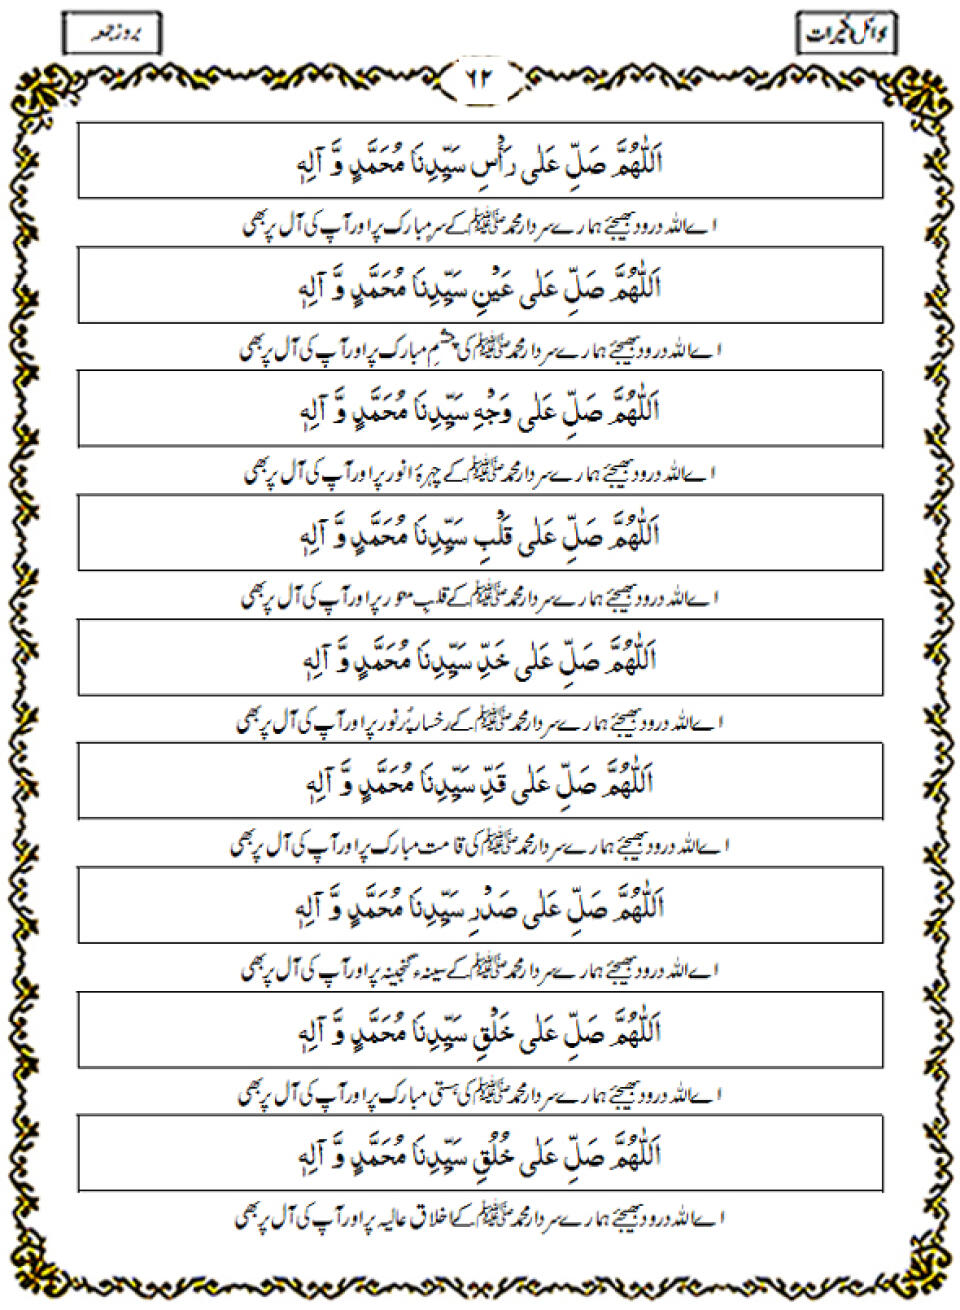 بروز جمعہ
۶۲
اَللّٰهُمَّ صَلِّ عَلٰى رَأْسِ سَيِّدِنَا مُحَمَّدٍ وَّ آلِهٖ
اے اللہ درود بھیجئے ہمارے سردار محمد ﷺ کے سرِ مبارک پر اور آپ کی آل پر بھی
اَللّٰهُمَّ صَلِّ عَلٰى عَيْنِ سَيِّدِنَا مُحَمَّدٍ وَّ آلِهٖ
اے اللہ درود بھیجئے ہمارے سردار محمد ﷺ کی چشمِ مبارک پر اور آپ کی آل پر بھی
اَللّٰهُمَّ صَلِّ عَلٰى وَجْهِ سَيِّدِنَا مُحَمَّدٍ وَّ آلِهٖ
اے اللہ درود بھیجئے ہمارے سردار محمد ﷺ کے چہرۂ انور پر اور آپ کی آل پر بھی
اَللّٰهُمَّ صَلِّ عَلٰى قَلْبِ سَيِّدِنَا مُحَمَّدٍ وَّ آلِهٖ
اے اللہ درود بھیجئے ہمارے سردار محمد ﷺ کے قلبِ پر اور آپ کی آل پر بھی
اَللّٰهُمَّ صَلِّ عَلٰى خَدِّ سَيِّدِنَا مُحَمَّدٍ وَّ آلِهٖ
اے اللہ درود بھیجئے ہمارے سردار محمد ﷺ کے رخسار پُرنور پر اور آپ کی آل پر بھی
اَللّٰهُمَّ صَلِّ عَلٰى قَدِّ سَيِّدِنَا مُحَمَّدٍ وَّ آلِهٖ
اے اللہ درود بھیجئے ہمارے سردار محمد ﷺ کی قامت مبارک پر اور آپ کی آل پر بھی
اَللّٰهُمَّ صَلِّ عَلٰى صَدْرِ سَيِّدِنَا مُحَمَّدٍ وَّ آلِهٖ
اے اللہ درود بھیجئے ہمارے سردار محمد ﷺ کے سینہء گنجینہ پر اور آپ کی آل پر بھی
اَللّٰهُمَّ صَلِّ عَلٰى خَلْقِ سَيِّدِنَا مُحَمَّدٍ وَّ آلِهٖ
اے اللہ درود بھیجئے ہمارے سردار محمد ﷺ کی ہستی مبارک پر اور آپ کی آل پر بھی
اَللّٰهُمَّ صَلِّ عَلٰى خُلُقِ سَيِّدِنَا مُحَمَّدٍ وَّ آلِهٖ
اے اللہ درود بھیجئے ہمارے سردار محمد ﷺ کے اخلاق عالیہ پر اور آپ کی آل پر بھی